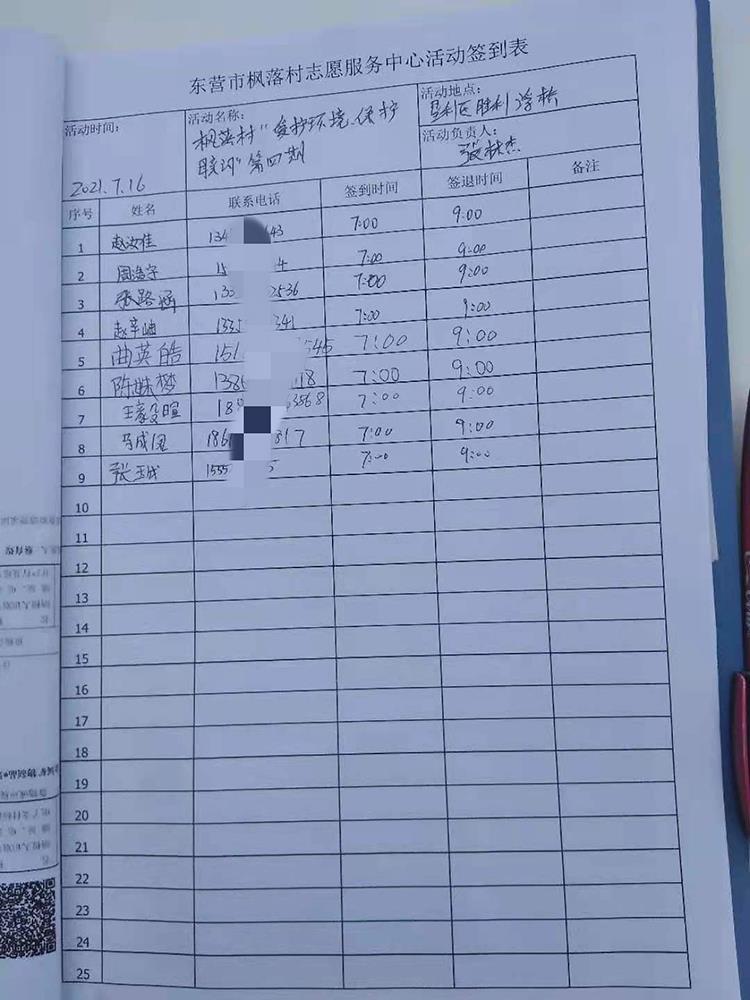 东营市枫落村志愿服务中心活动签到表
活动时间: 2021.7.16
活动名称: 枫落村"爱护环境、保护
胶河"第四期
活动地点:
垦利区胜利浮桥
活动负责人:
张林杰
序号 姓名 联系电话 签到时间 签退时间 备注
1 赵汝佳 134 43 7:00 9:00
2 周浩宇 15 4 7:00 9:00
3 张路涵 130 2536 7:00 9:00
4 赵辛迪 1335 341 7:00 9:00
5 曲英皓 151 545 7:00 9:00
6 陈姝梦 1386 18 7:00 9:00
7 王毅暄 18 3568 7:00 9:00
8 马成凤 186 817 7:00 9:00
9 张玉城 1555 5 7:00 9:00
10
11
12
13
14
15
16
17
18
19
20
21
22
23
24
25